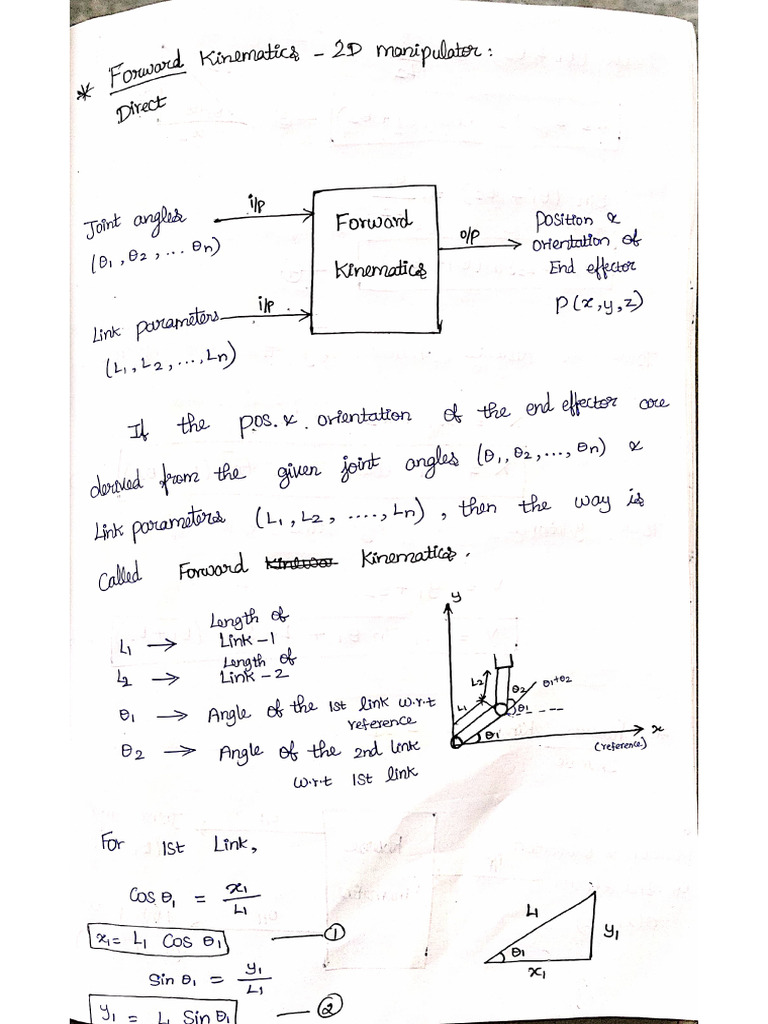 * Forward Kinematics - 2D manipulator:
Direct
Joint angles
(θ1, θ2, ... θn)
i/p
Forward
Kinematics
o/p
Position &
orientation of
End effector
P(x, y, z)
Link parameters
(L1, L2, ..., Ln)
i/p
If the pos. & orientation of the end effector are
derived from the given joint angles (θ1, θ2, ..., θn) &
Link parameters (L1, L2, ...., Ln), then the way is
Called Forward Kinematics.
L1 → Length of
Link-1
L2 → Length of
Link-2
θ1 → Angle of the 1st link w.r.t
reference
θ2 → Angle of the 2nd link
w.r.t 1st link
y
L2
L1
θ2
θ1+θ2
θ1
θ1
x
(reference)
For 1st Link,
Cos θ1 = x1/L1
x1 = L1 Cos θ1 — ①
Sin θ1 = y1/L1
y1 = L1 Sin θ1 — ②
L1
y1
θ1
x1